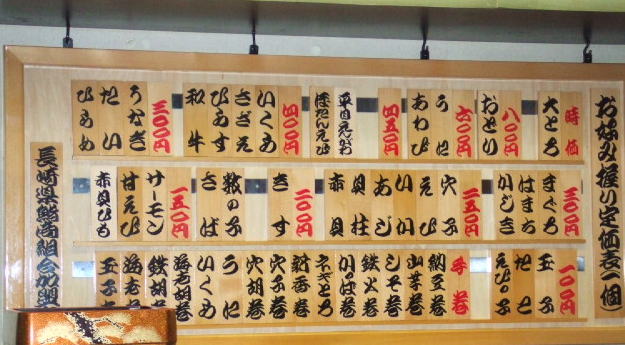 お好み握り定価表(一個)
時価
大とろ
八〇〇円
おどり
六〇〇円
うに
あわび
四五〇円
平目えんがわ
ぼたんえび
四〇〇円
いくめ
さざえ
ひらす
和牛
三〇〇円
うなぎ
たい
ひらめ
三〇〇円
まぐろ
はまち
かじき
二五〇円
穴子
えび
いか
あじ
貝柱
赤貝
二〇〇円
きす
数の子
さば
一五〇円
サーモン
甘えび
赤貝ひも
一〇〇円
玉子
たこ
えびの子
手巻
納豆巻
山芋巻
しそ巻
鉄火巻
かっぱ巻
ネギとろ
新香巻
穴子巻
穴胡巻
うに
いくめ
海老胡巻
鉄胡巻
海老巻
玉子巻
長崎県鮨商組合加盟